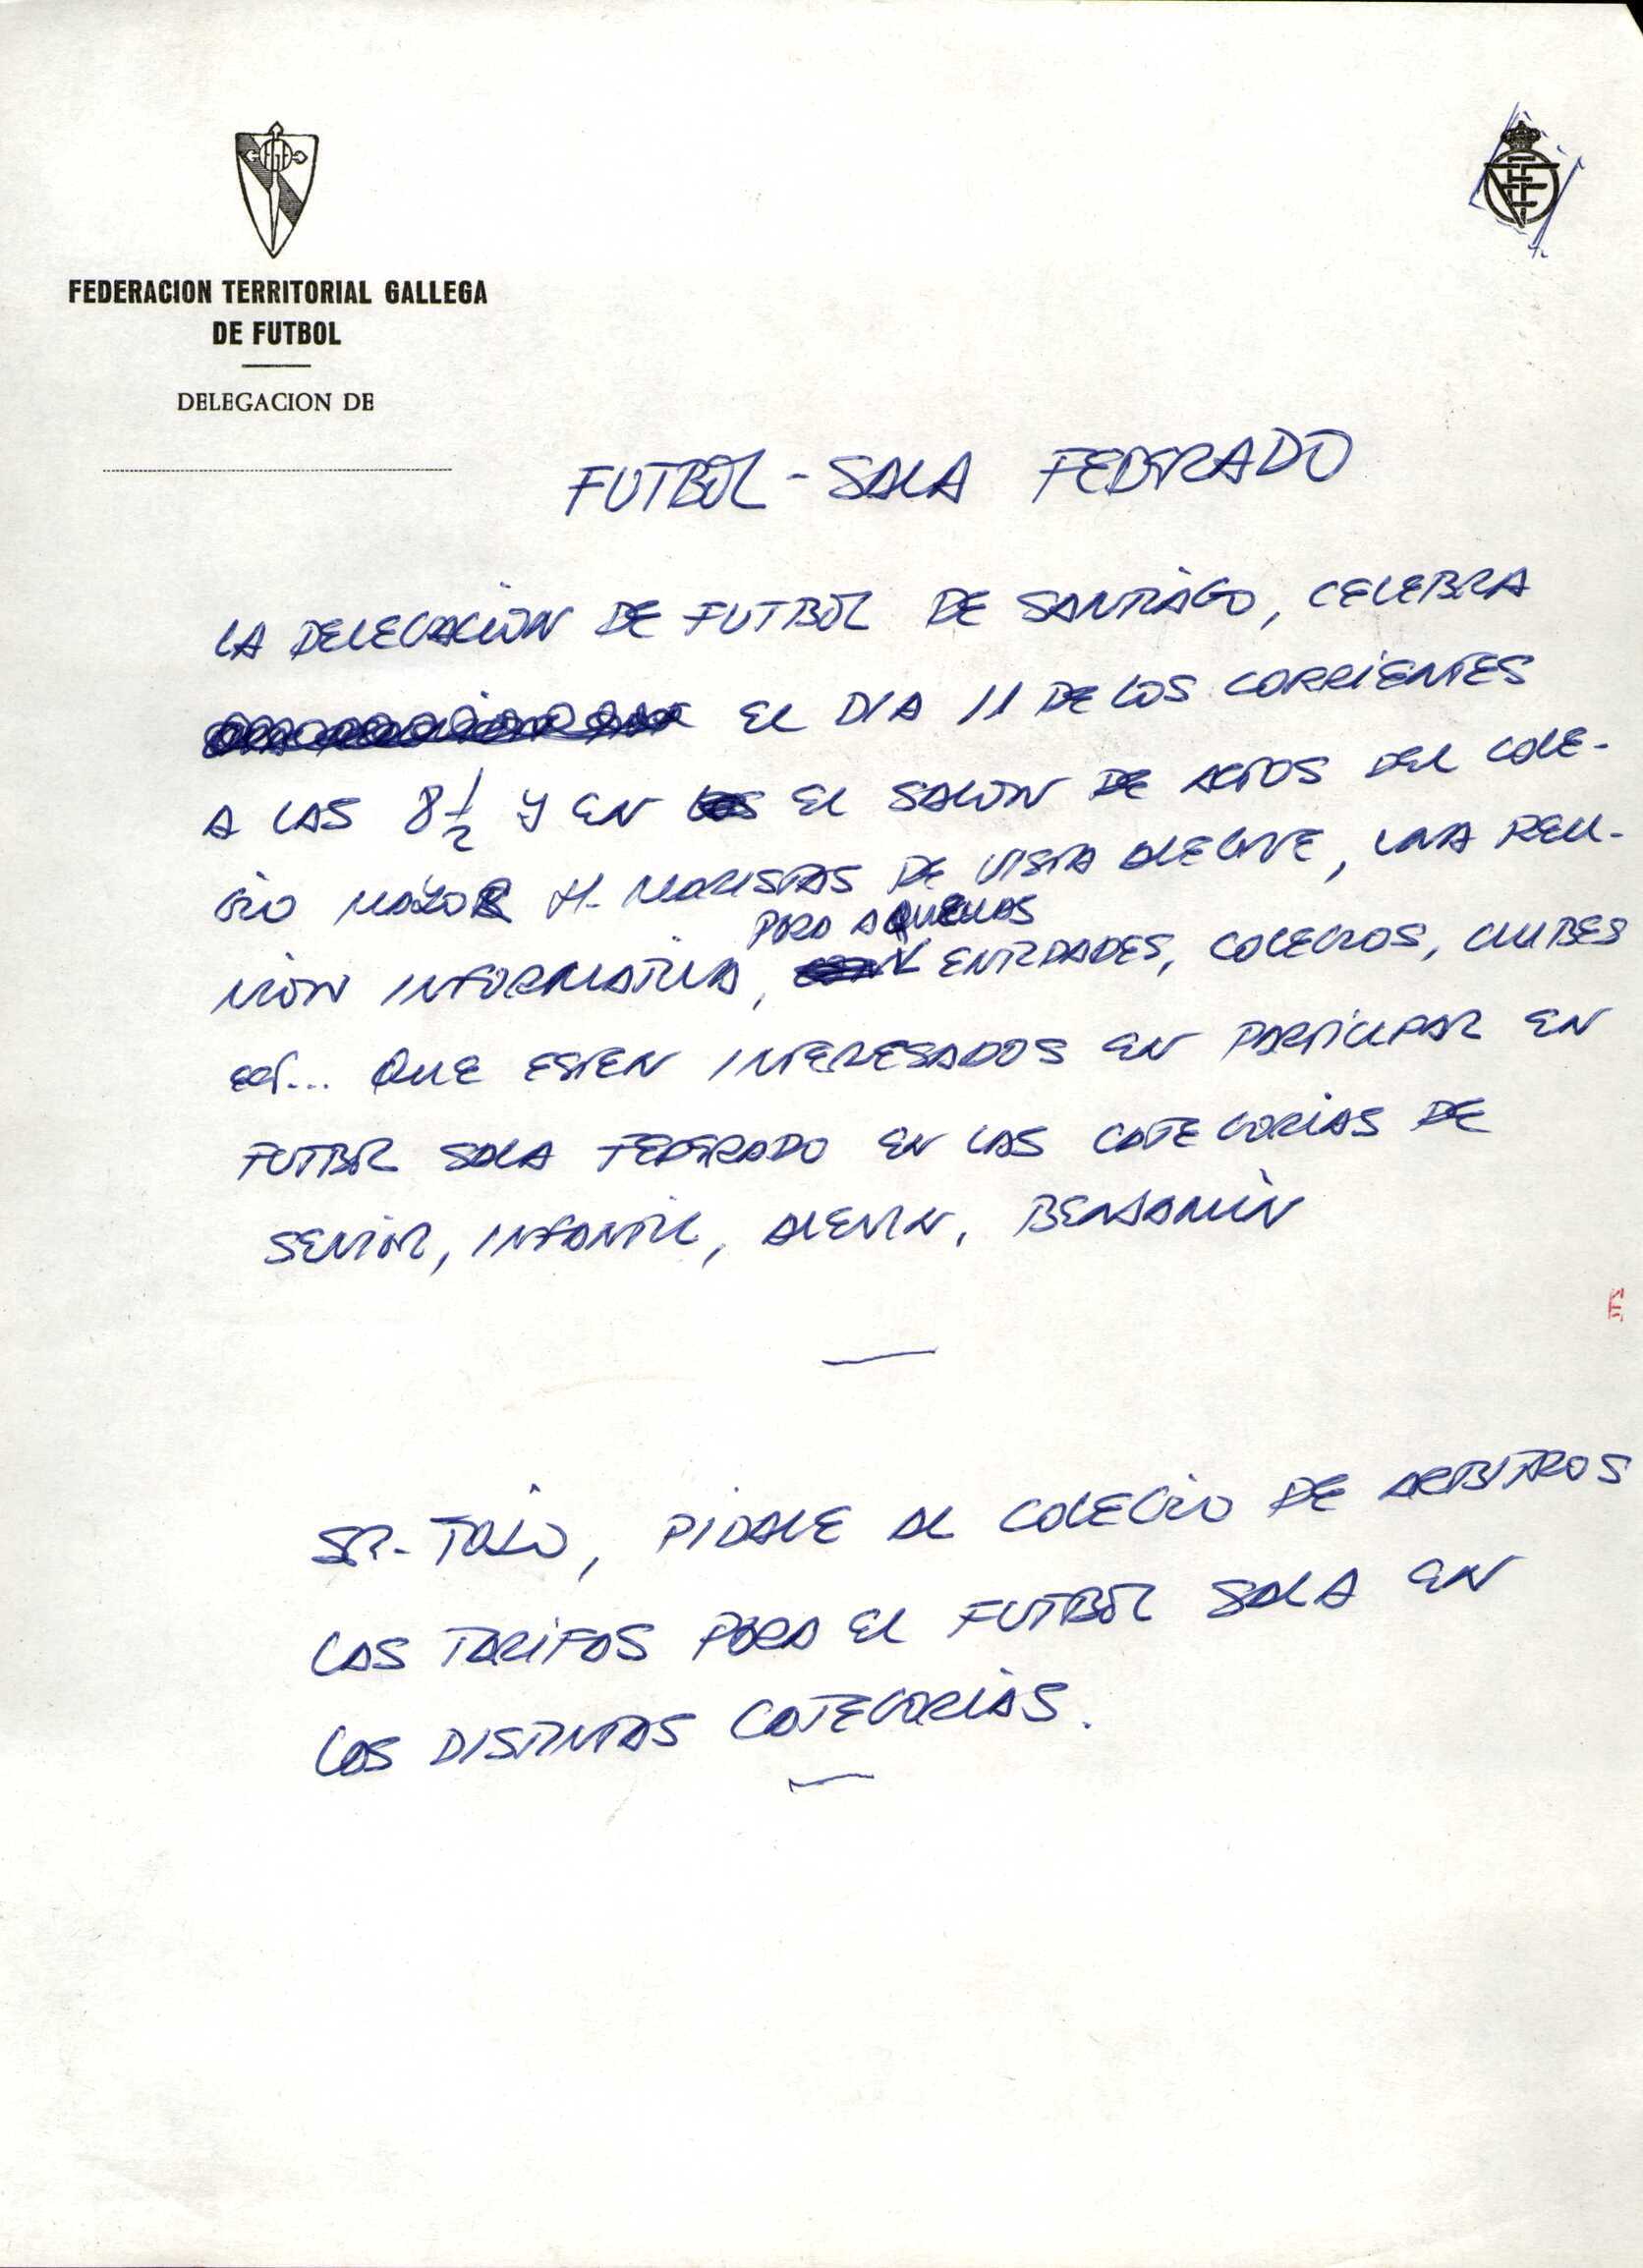 FEDERACION TERRITORIAL GALLEGA
DE FUTBOL
DELEGACION DE
FUTBOL - SALA FEDERADO
LA DELEGACIÓN DE FUTBOL DE SANTIAGO, CELEBRA
EL DIA 11 DE LOS CORRIENTES
A LAS 8 1/2 Y EN EL SALON DE ACTOS DEL COLE-
GIO MAYOR H. MARISTAS DE VISTA ALEGRE, UNA REU-
PARA AQUELLAS
NIÓN INFORMATIVA, ENTIDADES, COLEGIOS, CLUBES
ect... QUE ESTEN INTERESADOS EN PARTICIPAR EN
FUTBOL SALA FEDERADO EN LAS CATEGORIAS DE
SENIOR, INFANTIL, ALEVIN, BENJAMIN
SR. TOJO, PIDALE AL COLEGIO DE ARBITROS
LAS TARIFAS PARA EL FUTBOL SALA EN
LAS DISTINTAS CATEGORIAS.